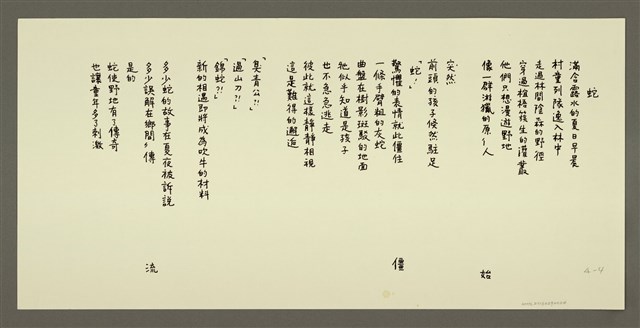 蛇
滿含露水的夏日早晨
村童列隊進入林中
走過林間陰森的野徑
穿過桂梧筱生的灌叢
他們只想漫遊野地
像一群狩獵的原始人
突然
前頭的孩子倏然駐足
「蛇！」
驚懼的表情就此僵住
一條手臂粗的灰蛇
曲盤在樹影斑駁的地面
牠似乎知道是孩子
也不急急逃走
彼此就這樣靜靜相視
這是難得的邂逅
「臭青公?!」
「過山刀?!」
「錦蛇?!」
新的相遇即將成為吹牛的材料
多少蛇的故事在夏夜被訴說
多少誤解在鄉間流傳
是的
蛇使野地有了傳奇
也讓童年多了刺激
始
僵
流
6-4